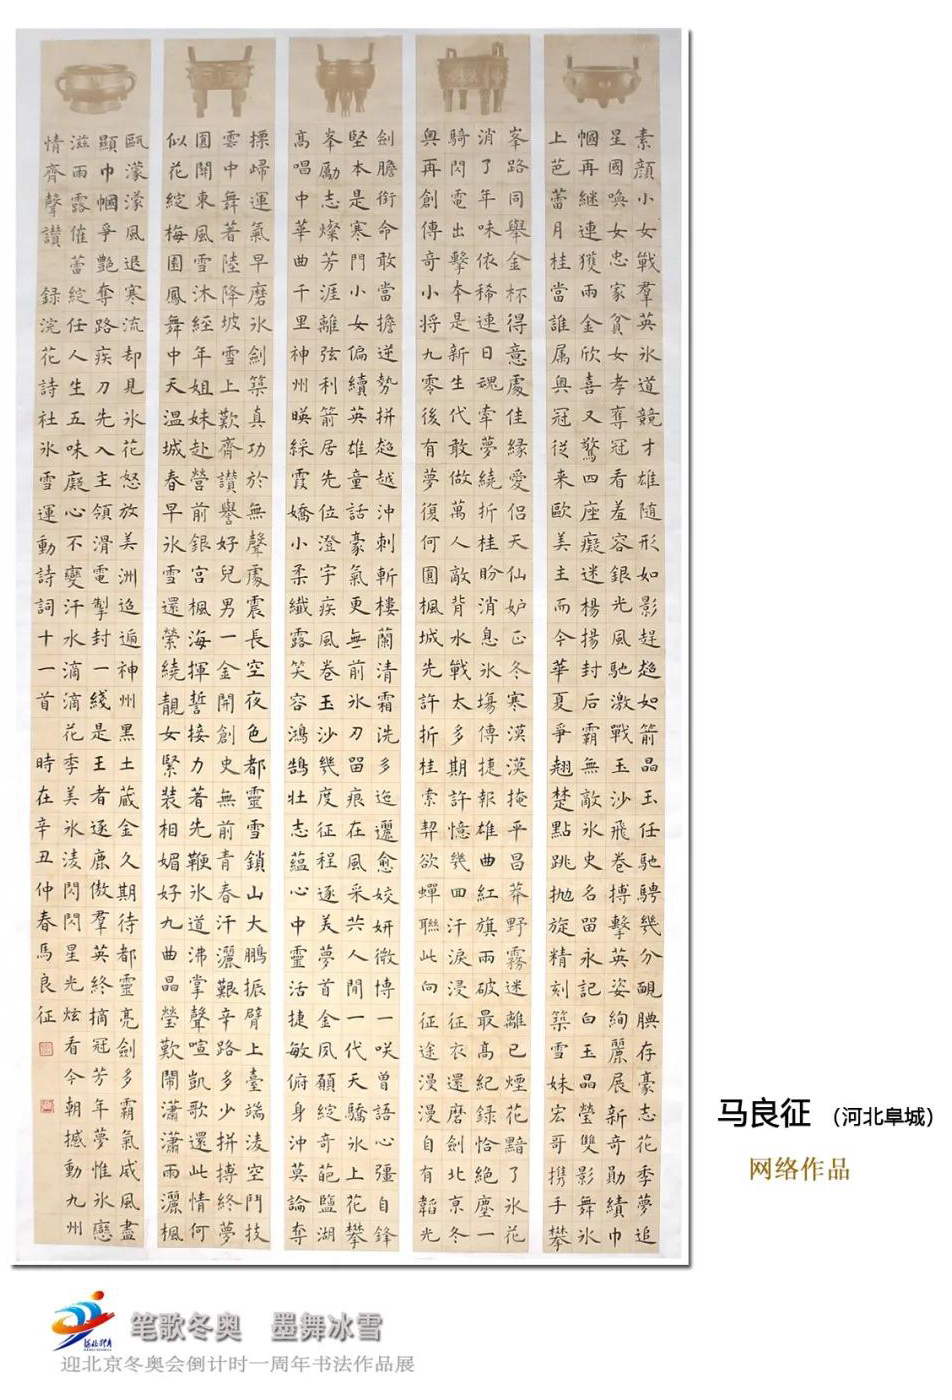 素顏小女戰羣英氷道競才雄隨形如影趕超如箭晶玉任馳騁幾分靦腆存豪志花季夢追
星國喚女忠家貧女孝奪冠看羞容銀光風馳激戰玉沙飛卷搏擊英姿絢麗展新奇勛績巾
幗再繼連獲兩金欣喜又驚四座癡迷楊揚封后霸無敵氷史名留永記白玉晶瑩雙影舞氷
上芭蕾月桂當誰属奧冠從來歐美主而今華夏爭翹楚點跳抛旋精刻築雪妹宏哥携手攀
峯路同舉金杯得意處佳緣愛侣天仙妒正冬寒漠漠掩平昌莽野霧迷離已煙花黯了氷花
消了年味依稀連日魂牽夢繞折桂盼消息氷場傳捷報雄曲紅旗雨破最高紀録恰絶塵一
騎閃電出擊本是新生代敢做萬人敵背水戰太多期許憶幾回汗淚浸征衣還磨劍北京冬
奧再創傳奇小将九零後有夢復何圓楓城先許折桂索契欲蟬聯此向征途漫漫自有韜光
劍膽銜命敢當擔逆勢拼超越沖刺斬樓蘭清霜洗多邐愈姣妍微博一咲曾語心彊自鋒
堅本是寒門小女偏續英雄童話豪氣更無前氷刀留痕在風采共人間一代天驕氷上花攀
峯勵志燦芳涯離弦利箭居先位澄宇疾風卷玉沙幾度征程逐美夢首金夙願綻奇葩鹽湖
高唱中華曲千里神州暎綵霞嬌小柔纖露笑容鴻鵠壯志藴心中靈活捷敏俯身沖莫論奪
運氣早磨氷劍築真功於無聲處震長空夜色都靈雪鎖山大鵬振臂上臺端凌空鬥技
雲中舞著陸降坡雪上歎齊讚譽好兒男一金開創史無前青春汗灑艱辛路多少拼搏終夢
圓開東風雪沐經年姐妹赴營前銀宮楓海揮誓接力著先鞭氷道沸掌聲喧凱歌還此情何
似花綻梅園鳳舞中天温城春早氷雪還縈繞靚女緊装相媚好九曲晶瑩歎鬧瀟瀟雨灑楓
甌濛濛風退寒流却見氷花怒放美洲遍神州黑土蔵金久期待都靈亮劍多霸氣威風盡
顯巾幗爭艷奪路疾刀先入主領滑電掣封一綫是王者逐鹿傲羣英終摘冠芳年夢惟氷戀
滋雨露催蕾綻任人生五味癡心不變汗水滴滴花季美氷凌閃閃星光炫看今朝撼動九州
情齊聲讚 録浣花詩社氷雪運動詩詞十一首 時在辛丑仲春馬良征
马良征 （河北阜城）
网络作品
笔歌冬奥 墨舞冰雪
迎北京冬奥会倒计时一周年书法作品展